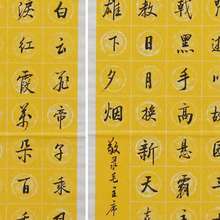 戟黑手高懸霸
教日月換新天
雄下夕烟
敬录毛主席
白云飛帝子乘
淚红霞萬朵百